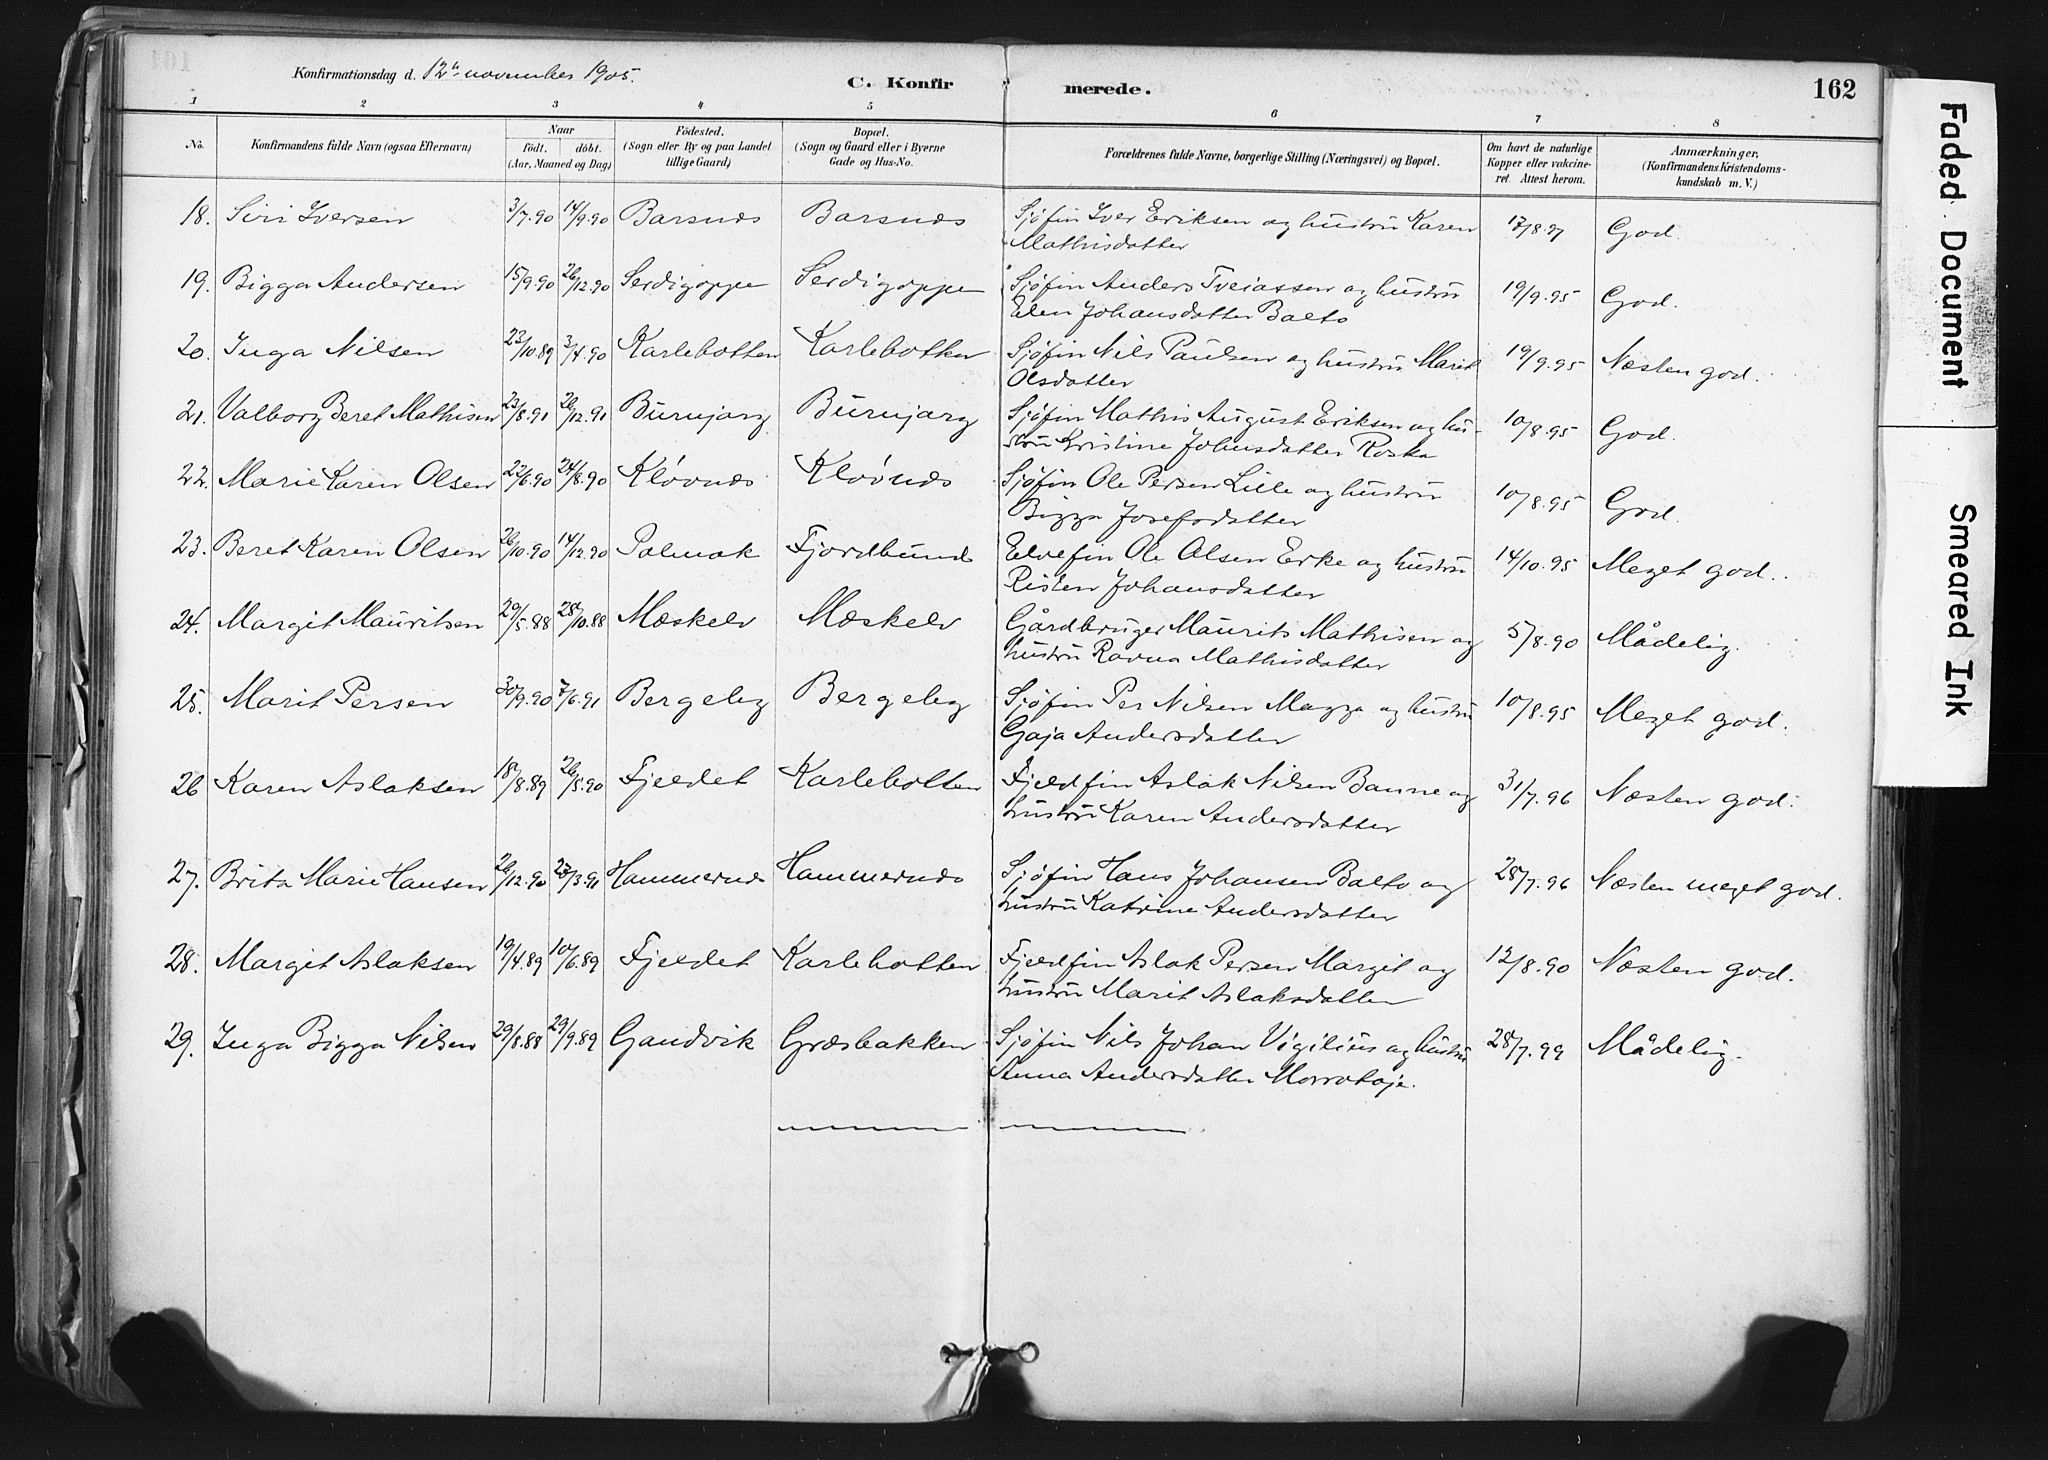 Konfirmationsdag d. 12te november 1905.
C. Konfirmerede.
162
1 2 3 4 5 6 7 8
No.
Konfirmandens fulde Navn (ogsaa Efternavn)
Naar
födt. döbt.
(Aar, Maaned og Dag)
Födested.
(Sogn eller By og paa Landet
tillige Gaard)
Bopæl.
(Sogn og Gaard eller i Byerne
Gade og Hus-No.
Forældrenes fulde Navne, borgerlige Stilling (Næringsvei) og Bopæl.
Om havt de naturlige
Kopper eller vakcine-
ret. Attest herom.
Anmærkninger,
(Konfirmandens Kristendoms-
kundskab m. V.)
18. Siri Iversen 3/7.90 14/9.90 Barsnæs Barsnæs Sjøfin Iver Eriksen og hustru Karen 17/8.97 God.
Mathisdatter
19. Bigga Andersen 15/9.90 26/12.90 Serdigoppe Serdigoppe Sjøfin Anders Tveiassen og hustru 19/9.95 God.
Elen Johansdatter Balto
20. Inga Nilsen 23/10.89 3/4.90 Karlebotten Karlebotten Sjøfin Nils Paulsen og hustru Marit 19/9.95 Næsten god.
Olsdatter
21. Valborg Beret Mathisen 23/8.91 26/12.91 Burnjarg Burnjarg Sjøfin Mathis August Eriksen og hu- 10/8.95 God.
stru Kristine Johnsdatter Roska
22. Marie Karen Olsen 22/6.90 24/8.90 Kløvnæs Kløvnæs Sjøfin Ole Persen Lille og hustru 10/8.95 God.
Bigga Josefsdatter
23. Beret Karen Olsen 26/10.90 14/12.90 Polmak Fjordbund Elvefin Ole Olsen Erke og hustru 14/10.95 Meget god.
Risten Johansdatter
24. Margit Mauritsen 29/5.88 28/10.88 Mæskelv Mæskelv Gårdbruger Maurits Mathisen og 5/8.90 Mådelig.
hustru Ravna Mathisdatter
25. Marit Persen 30/9.90 7/6.91 Bergeby Bergeby Sjøfin Per Nilsen Magga og hustru 10/8.95 Meget god.
Gaja Andersdatter
26 Karen Aslaksen 18/8.89 26/5.90 Fjeldet Karlebotten Fjeldfin Aslak Nilsen Banne og 31/7.96 Næsten god.
hustru Karen Andersdatter
27. Brita Marie Hansen 26/12.90 28/3.91 Hammernæs Hammernæs Sjøfin Hans Johansen Balto og 28/7.96 Næsten meget god.
hustru Katrine Andersdatter
28. Margit Aslaksen 19/4.89 10/6.89 Fjeldet Karlebotten Fjeldfin Aslak Persen Margit og 12/8.90 Næsten god.
hustru Marit Aslaksdatter
29. Inga Bigga Nilsen 29/8.88 29/9.89 Gandvik Græsbakken Sjøfin Nils Johan Vigilius og hustru 28/7.99 Mådelig.
Anna Andersdatter Morrotaje.
Faded Document
Smeared Ink